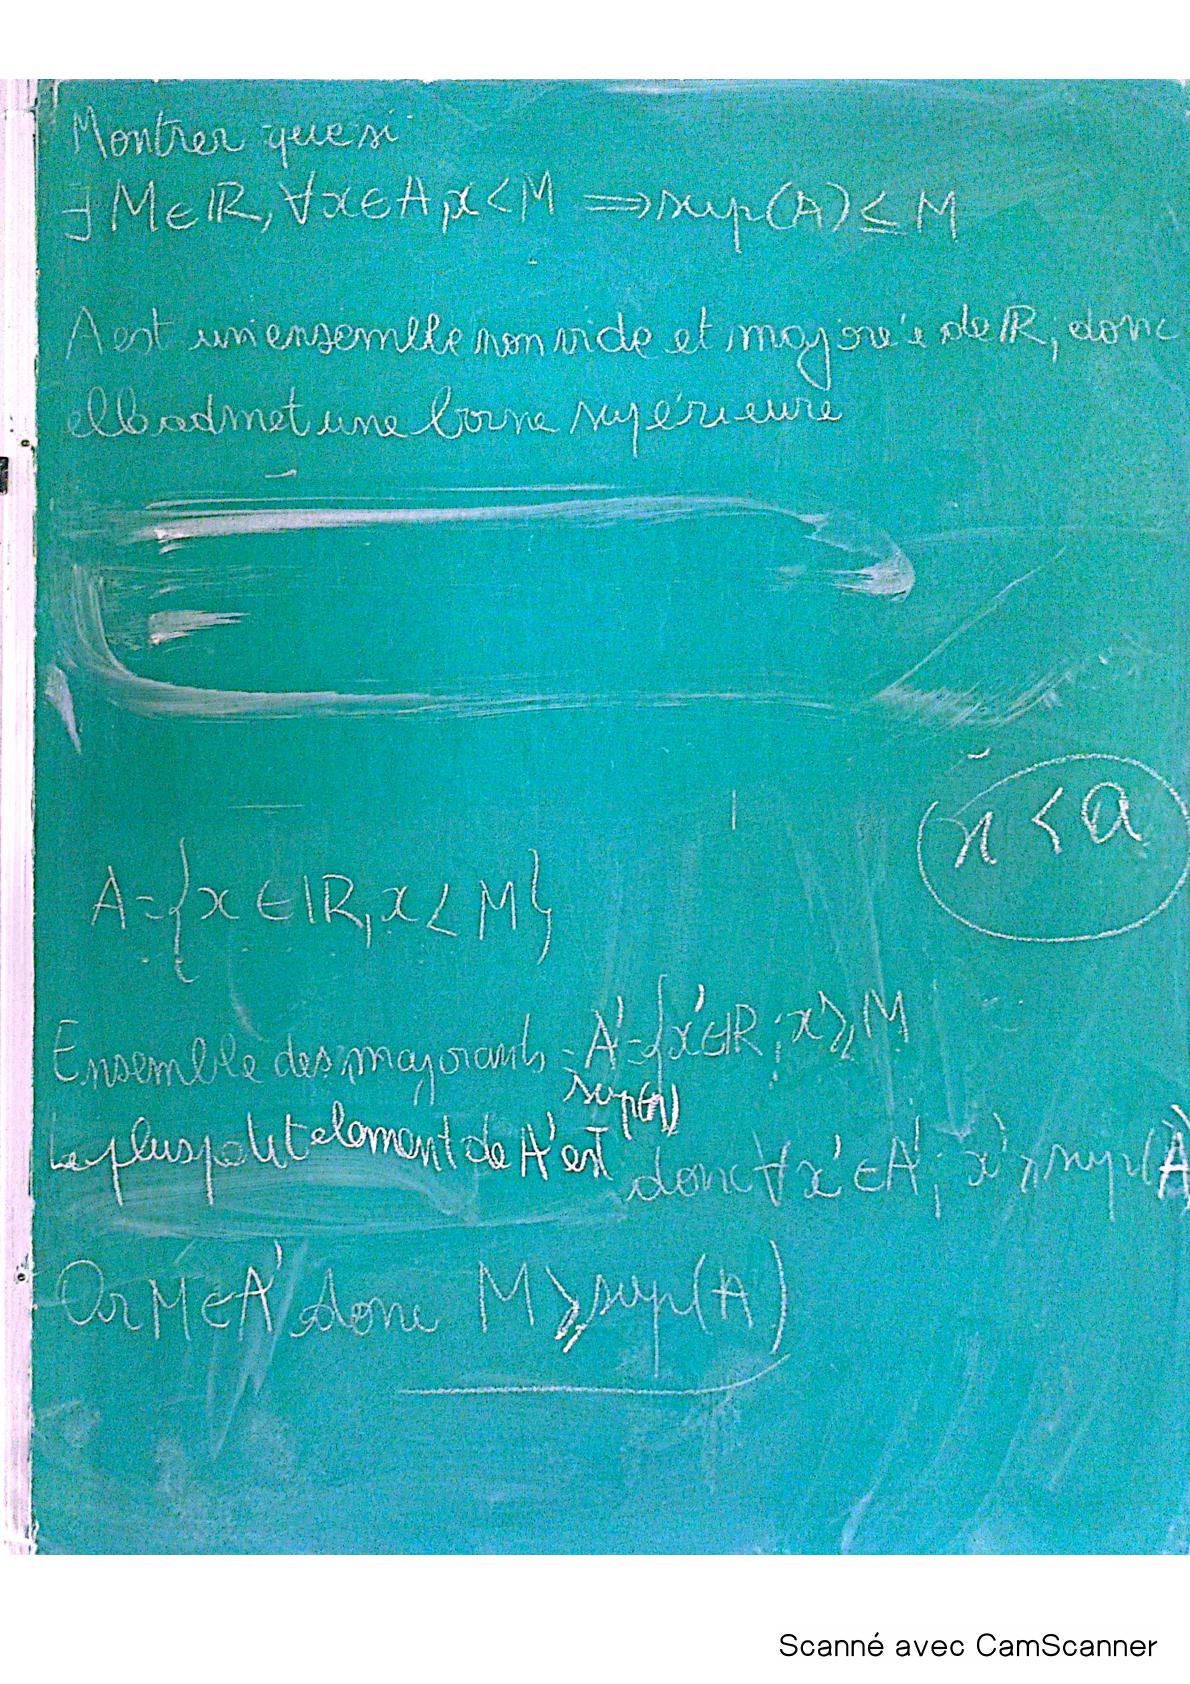 Montrer que si
∃ M ∈ ℝ, ∀x ∈ A, x < M ⟹ sup(A) ≤ M
A est un ensemble non vide et majoré de ℝ, donc
elle admet une borne supérieure
x < a
A = {x ∈ ℝ, x < M}
Ensemble des majorants = A' = {x' ∈ ℝ ; x' ⩾ M
Le plus petit element de A' est sup(A) donc ∀x' ∈ A' ; x' ⩾ sup(A)
Or M ∈ A' donc M ⩾ sup(A)
Scanné avec CamScanner